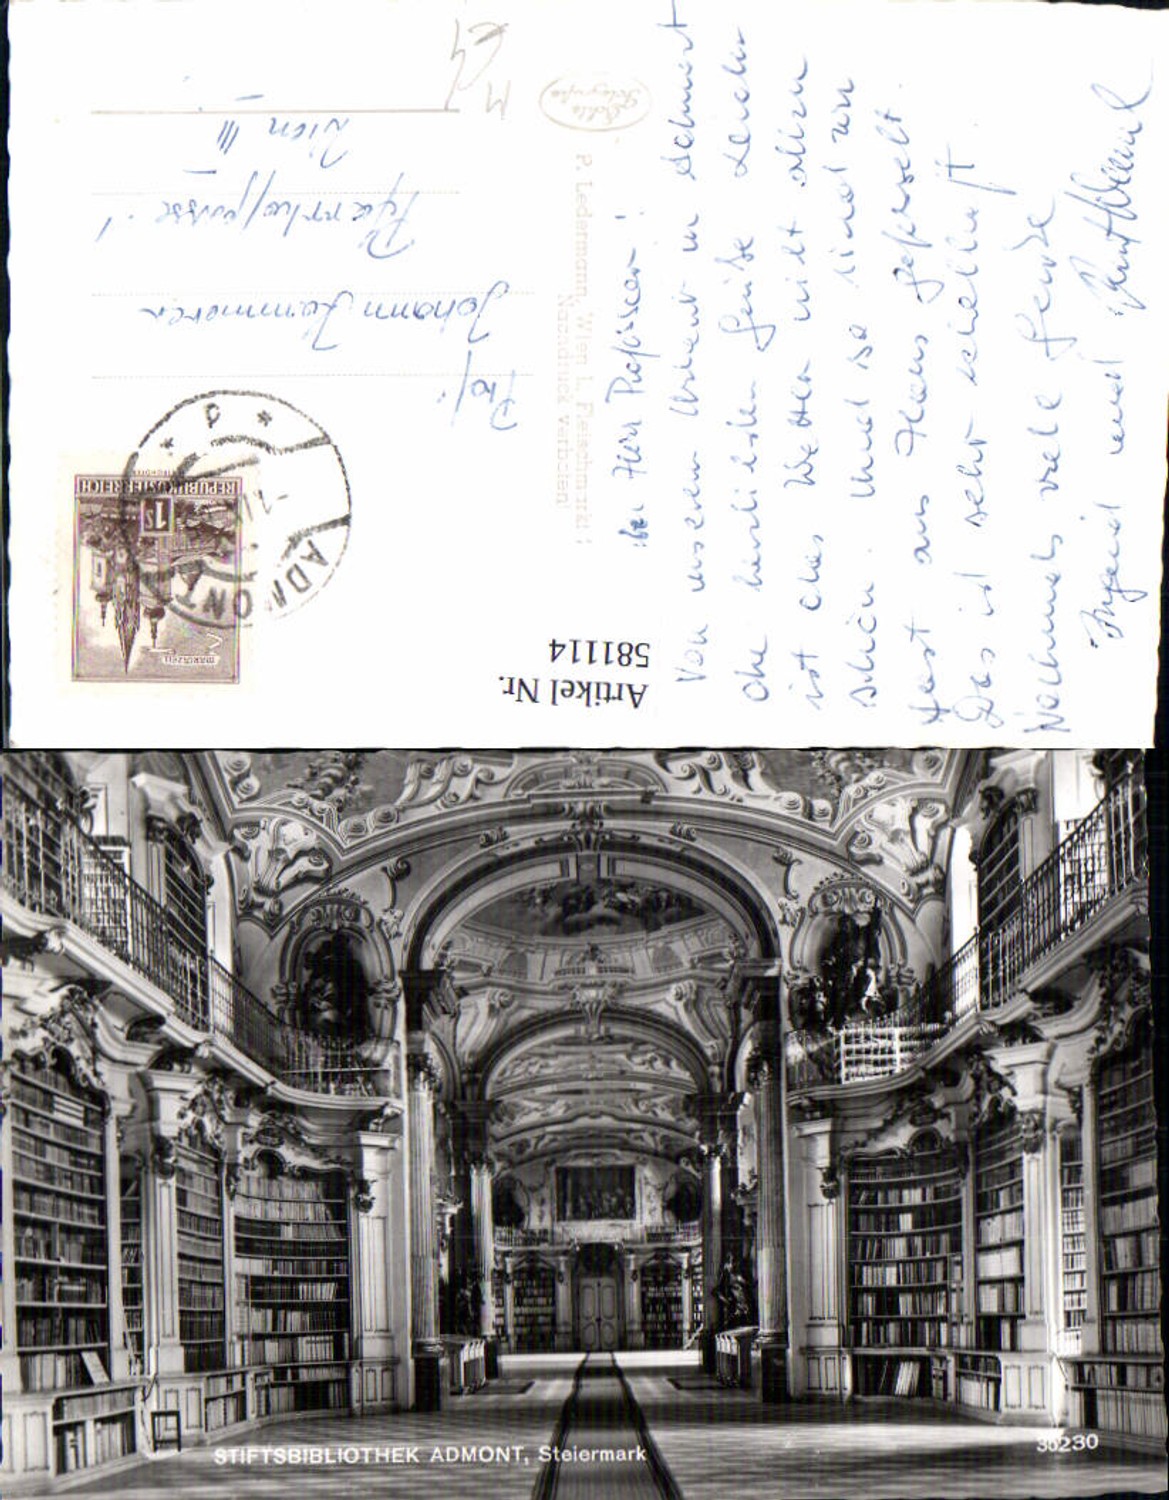 Artikel Nr.
581114
MARIAZELL
1S
REPUBLIK ÖSTERREICH
ADMONT
Prof.
Johann
Pfarrhofgasse 1
Wien III
Echte
Fotografie
P. Ledermann, Wien I, Fleischmarkt 1
Nachdruck verboten!
Herr Professor!
Von unserem Urlaub in Admont
die herzlichsten Grüße. Leider
ist das Wetter nicht allzu
schön. Und so sind wir
fast ans Haus gefesselt.
Das ist sehr
Nochmals viele Grüße
Ingrid und
STIFTSBIBLIOTHEK ADMONT, Steiermark
30230